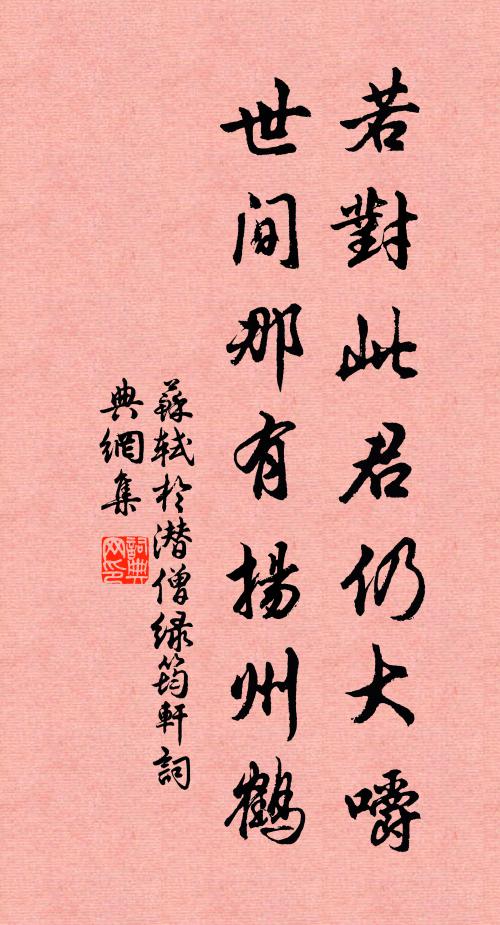 若對此君仍大嚼
世间那有揚州鶴
蘇軾於潜僧緑筠軒詞
典網集
詞典网印